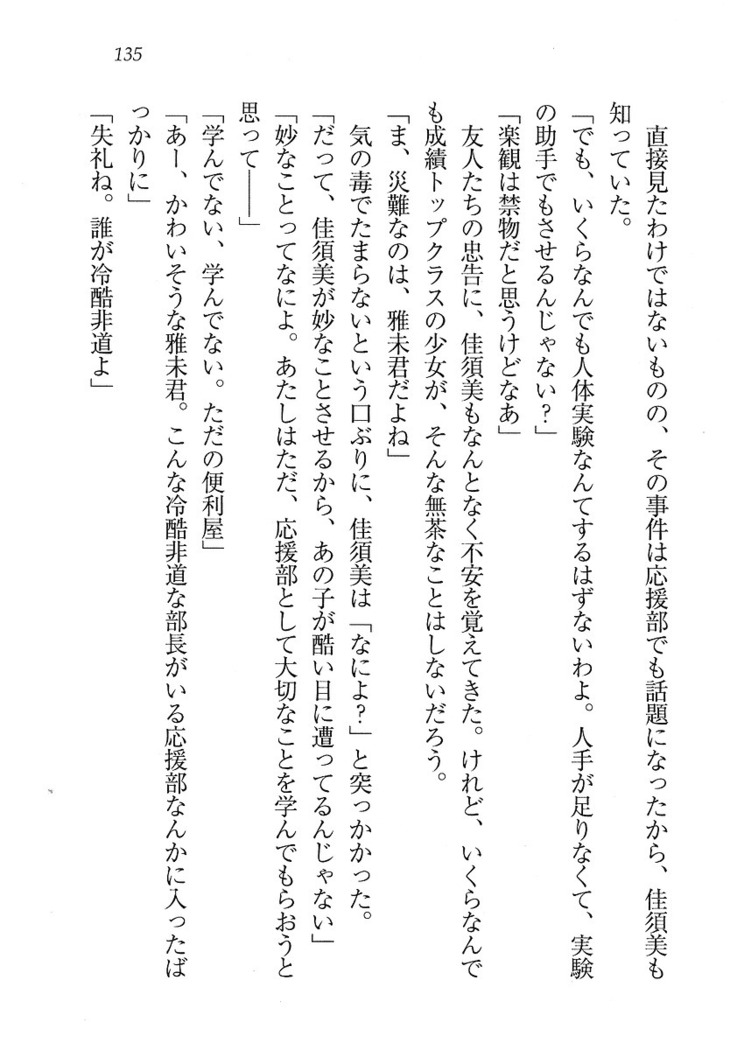 135
直接見たわけではないものの、その事件は応援部でも話題になったから、佳須美も
知っていた。
「でも、いくらなんでも人体実験なんてするはずないわよ。人手が足りなくて、実験
の助手でもさせるんじゃない?」
「楽観は禁物だと思うけどなあ」
友人たちの忠告に、佳須美もなんとなく不安を覚えてきた。けれど、いくらなんで
も成績トップクラスの少女が、そんな無茶なことはしないだろう。
「ま、災難なのは、雅未君だよね」
気の毒でたまらないという口ぶりに、佳須美は「なによ?」と突っかかった。
「だって、佳須美が妙なことさせるから、あの子が酷い目に遭ってるんじゃない」
「妙なことってなによ。あたしはただ、応援部として大切なことを学んでもらおうと
思って――」
「学んでない、学んでない。ただの便利屋」
「あー、かわいそうな雅未君。こんな冷酷非道な部長がいる応援部なんかに入ったば
っかりに」
「失礼ね。誰が冷酷非道よ」